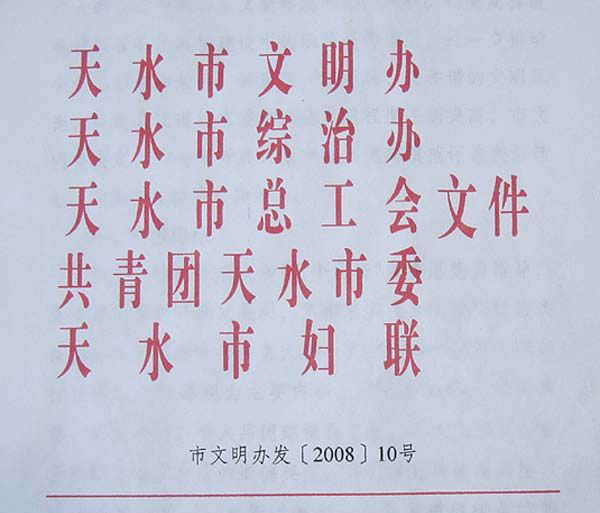 天水市文明办
天水市综治办
天水市总工会文件
共青团天水市委
天水市妇联
市文明办发〔2008〕10号